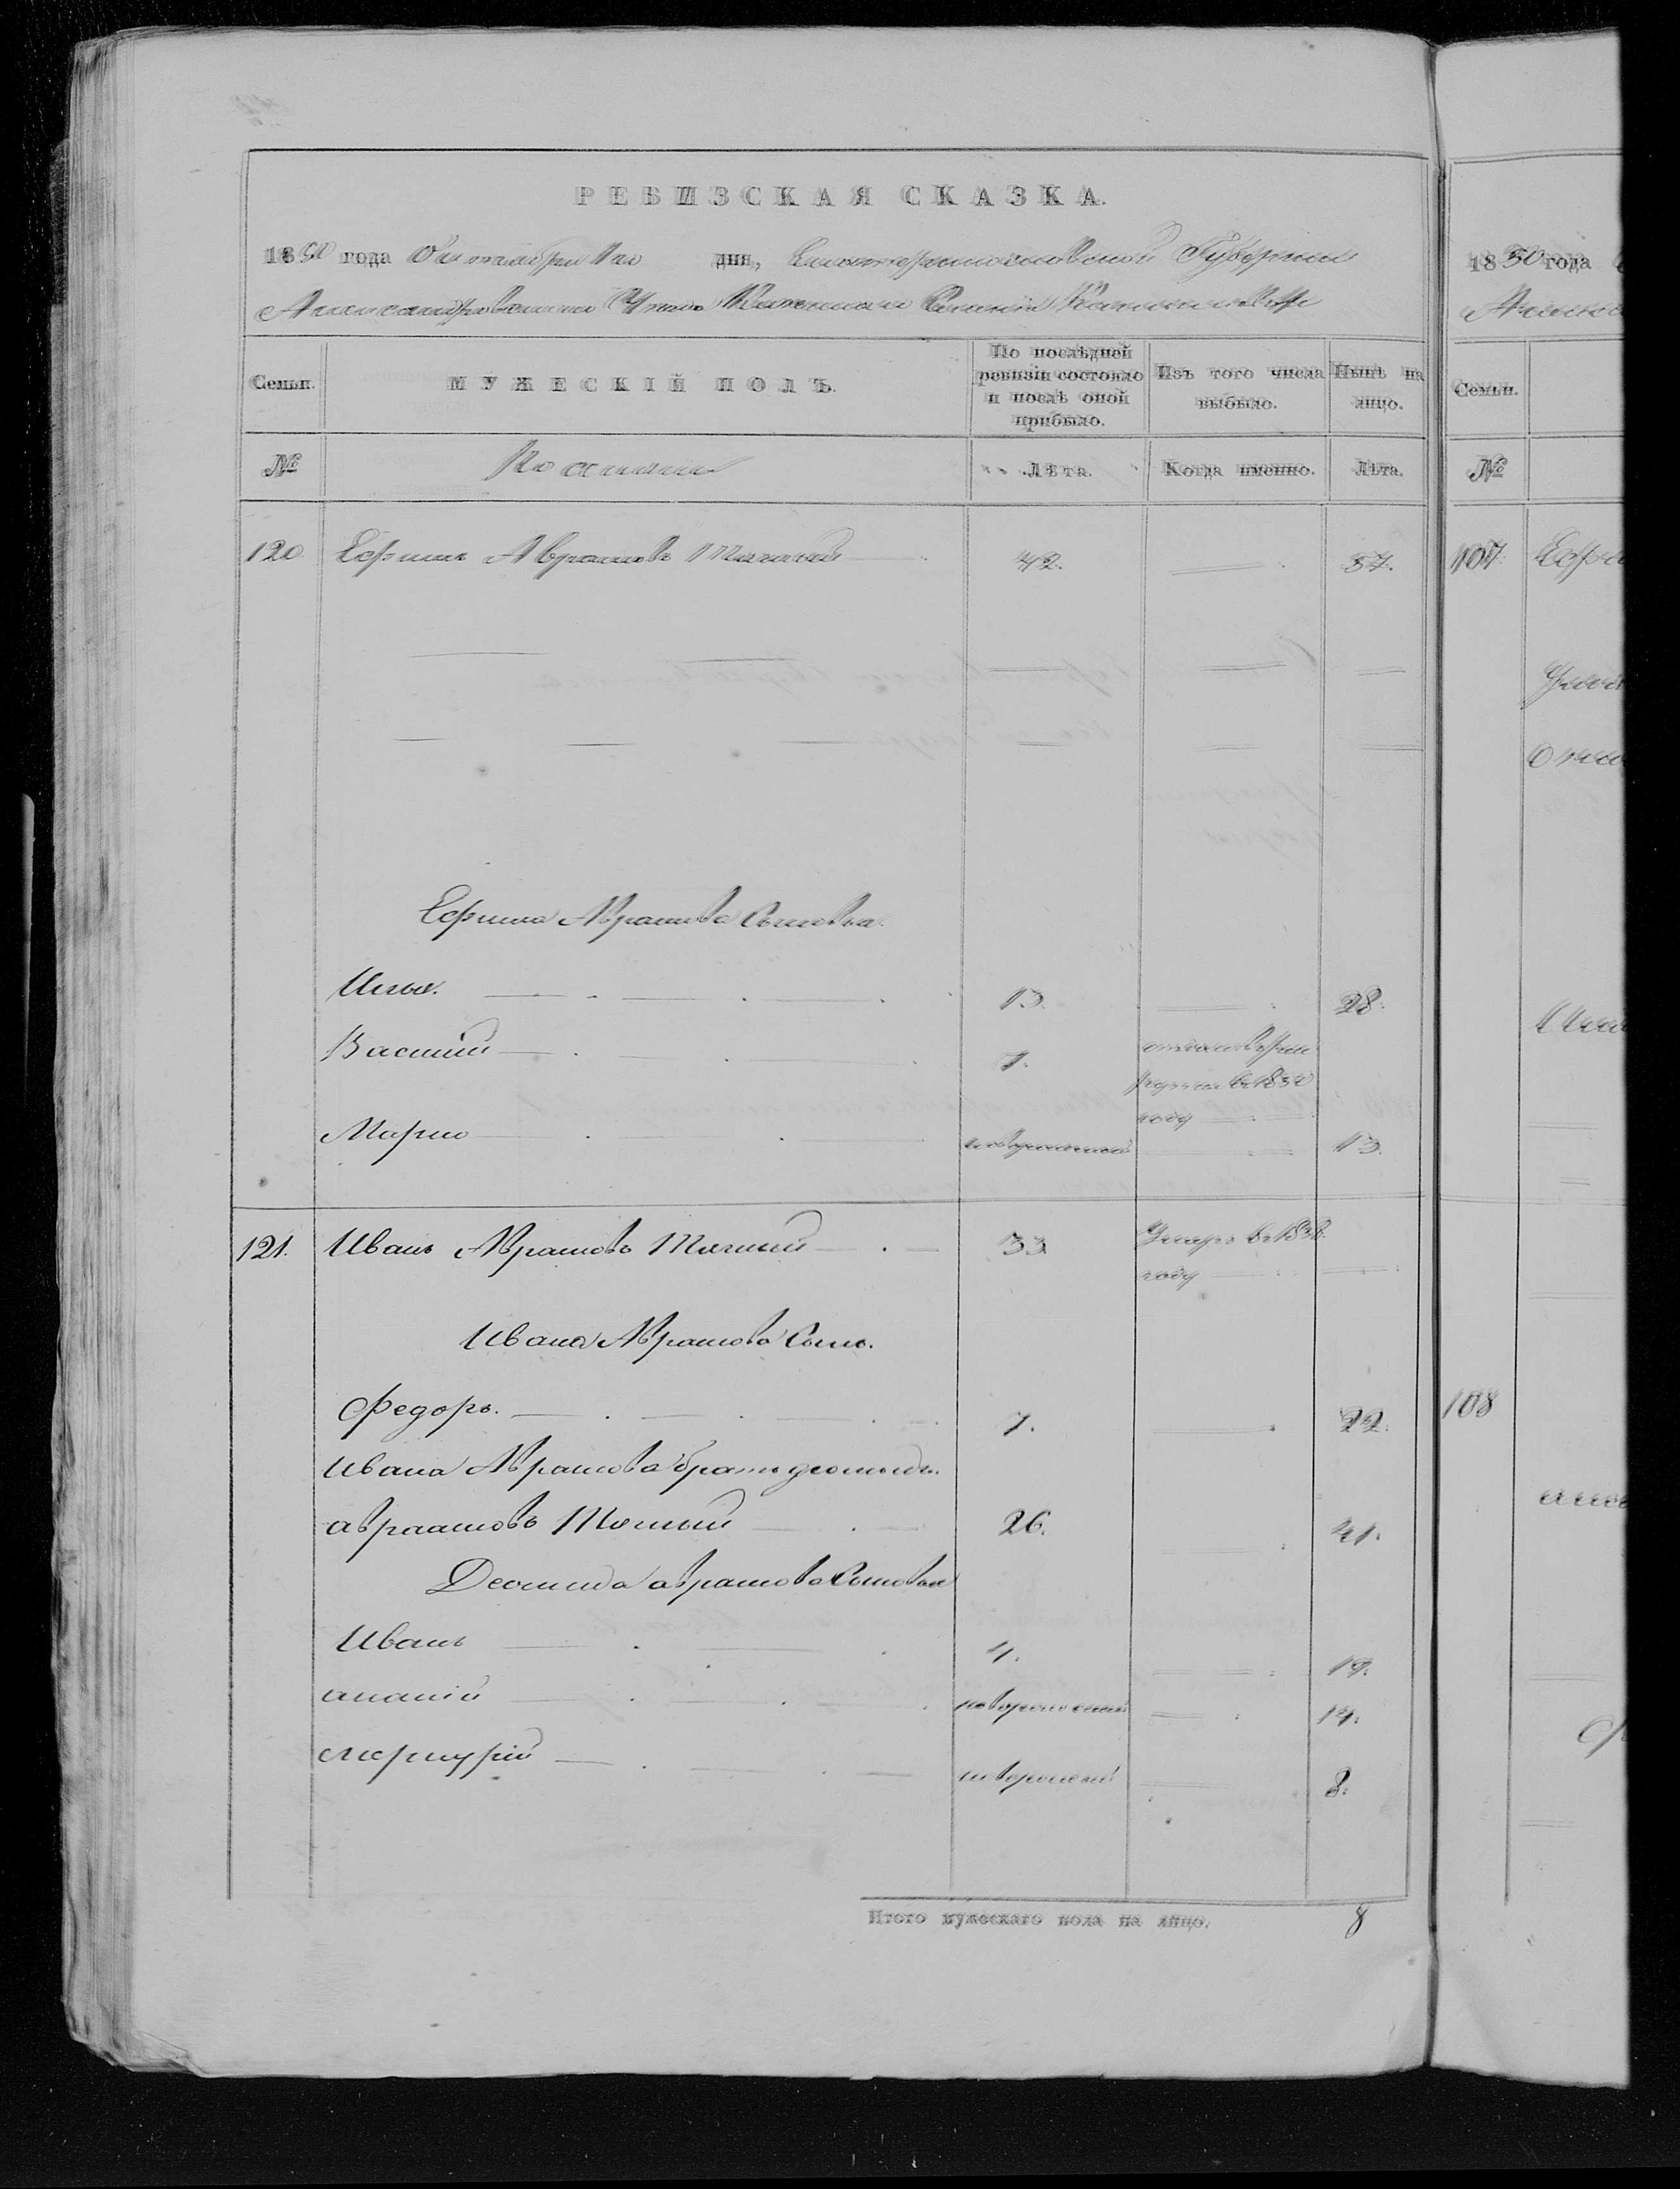 РЕВИЗСКАЯ СКАЗКА.
1850 года Октября дня, Екатеринославской Губернии
Александровскаго Уѣзда Казеннаго Селенія
Семьи. МУЖЕСКІЙ ПОЛЪ. По послѣдней ревизіи состояло и послѣ оной прибыло. Изъ того числа выбыло. Нынѣ на лицо.
№ Лѣта. Когда именно. Лѣта.
120 Ефимъ Аврамовъ 42. 57.
Ефима Аврамова Сыновья.
Илья. 13. 28.
Василий 7. отданъ въ
рекруты въ 18
году
Марко новорожденный 13.
121. Иванъ Аврамовъ 33 Умеръ въ 1838.
году
Ивана Аврамова Сынъ.
Федоръ. 7. 22.
Ивана Аврамова братъ Деомидъ.
Авраамовъ 26. 41.
Деомида Аврамова Сыновья
Иванъ 4. 19.
Ананій новорожденный 14.
Меркурій новорожденный 8.
Итого мужескаго пола на лицо. 8
1850 года
Семьи.
№
107
108